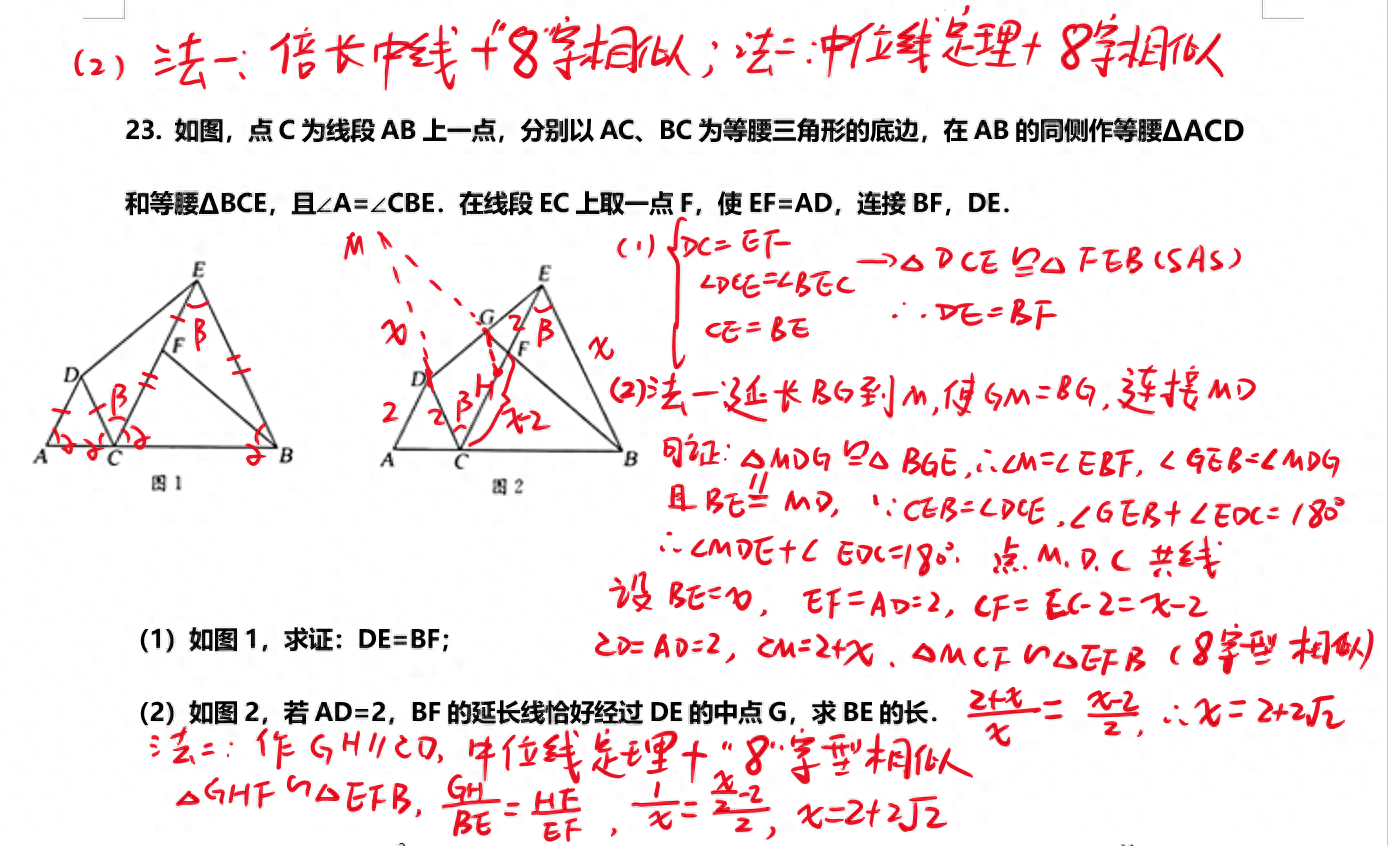 (2) 法一: 倍长中线+"8"字相似; 法二: 中位线定理+8字相似
23. 如图，点 C 为线段 AB 上一点，分别以 AC、BC 为等腰三角形的底边，在 AB 的同侧作等腰ΔACD
和等腰ΔBCE，且∠A=∠CBE．在线段 EC 上取一点 F，使 EF=AD，连接 BF，DE．
(1) DC=EF
∠DCE=∠BEC
CE=BE
→△DCE≌△FEB(SAS)
∴DE=BF
E
β
F
D
β
α
α
α
α
A
C
B
图 1
M
E
G
2
β
x
F
x
D
H
2
2
β
x-2
A
C
B
图 2
(2)法一 延长BG到M,使GM=BG,连接MD
可证: △MDG≌△BGE,∴∠M=∠EBF, ∠GEB=∠MDG
且BE∥=MD, ∵CEB=∠DCE,∠GEB+∠EDC=180°
∴∠MDE+∠EDC=180°. 点.M.D.C 共线
设BE=x, EF=AD=2, CF=EC-2=x-2
(1) 如图 1，求证：DE=BF；
CD=AD=2, CM=2+x. △MCF∽△EFB (8字型相似)
(2) 如图 2，若 AD=2，BF 的延长线恰好经过 DE 的中点 G，求 BE 的长．
2+x/x=x-2/2, ∴x=2+2√2
法二: 作GH∥CD, 中位线定理+"8"字型相似
△GHF∽△EFB, GH/BE=HF/EF, 1/x=x/2-2/2, x=2+2√2